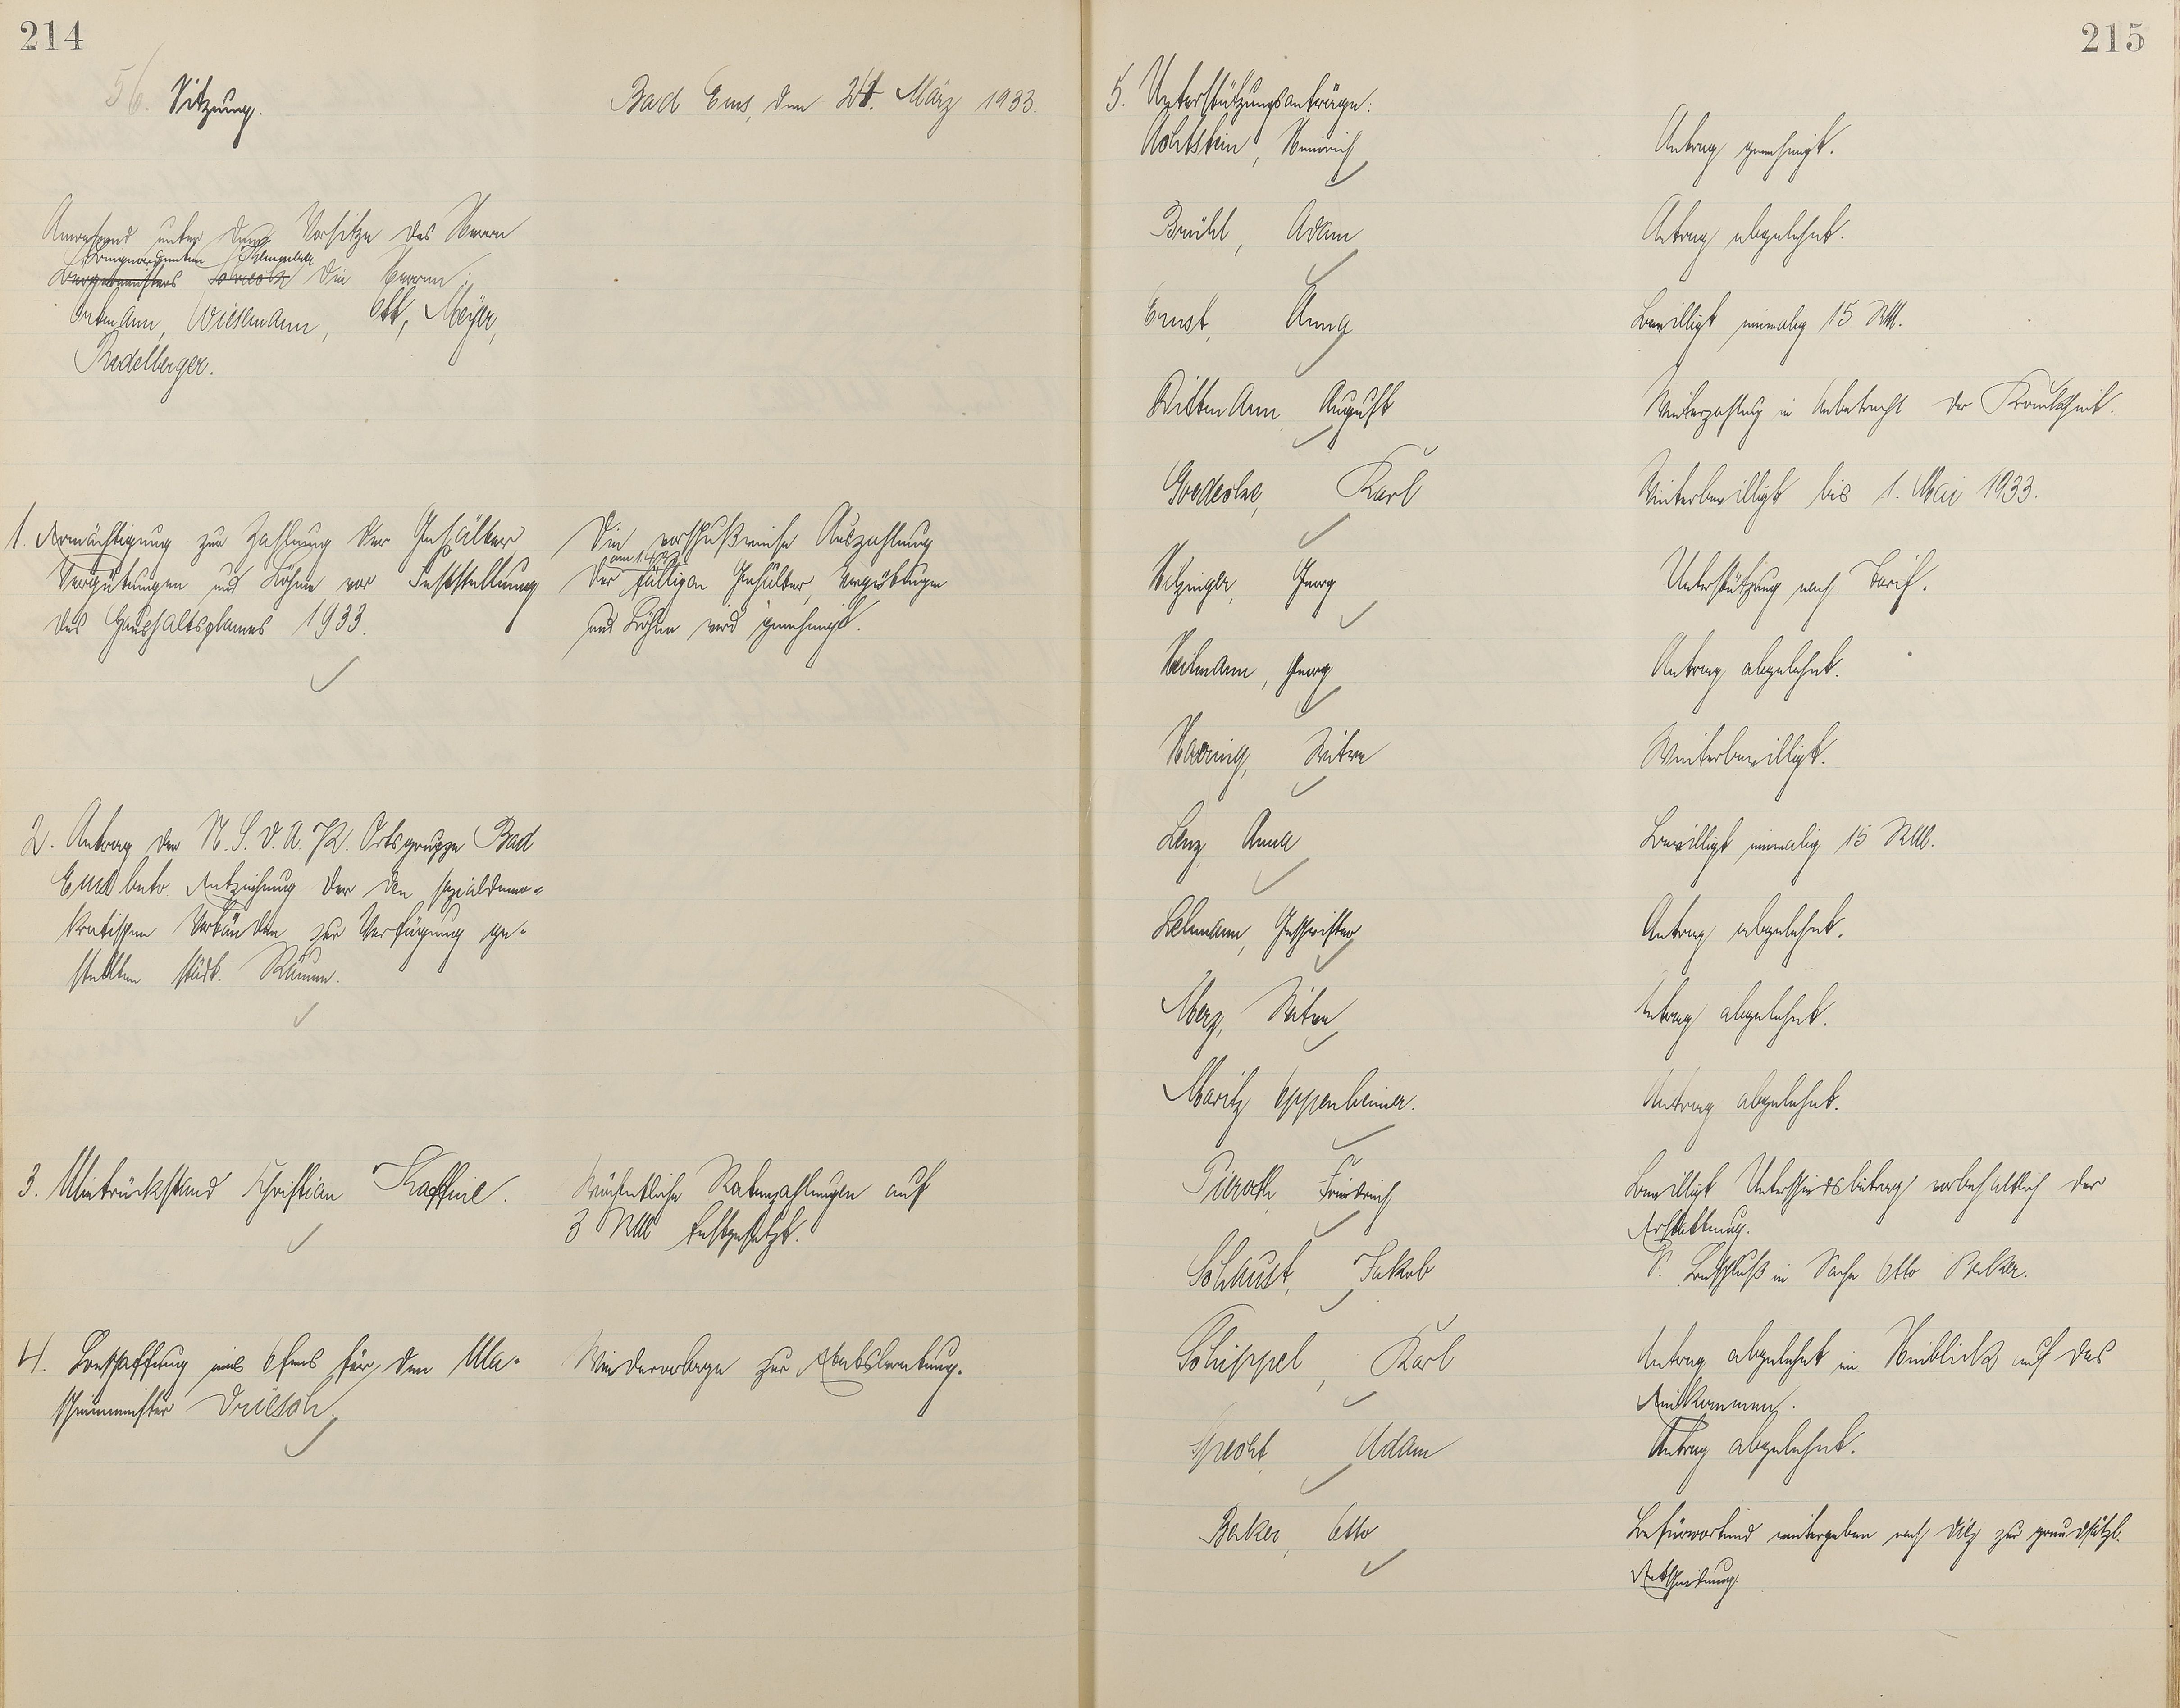 214
56. Sitzung.
Bad Ems, den 21. März 1933.
Anwesend unter dem Vorsitze des Herrn
Beigeordneten
Bürgermeisters Schreck die Herren:
Ortmann, Wiesemann, Ott, Meyer,
Bedelberger.
1. Ermächtigung zur Zahlung der Gehälter
Vergütungen und Löhne vor Feststellung
des Haushaltsplanes 1933.
Die vorschußweise Auszahlung
am 1.4.33
der fälligen Gehälter, Vergütungen
und Löhne wird genehmigt.
2. Antrag der N.S.D.A.P. Ortsgruppe Bad
Ems betr. Entziehung der den sozialdemo-
kratischen Verbänden zur Verfügung ge-
stellten städt. Räume.
3. Mietrückstand Christian Kaffine.
Wöchentliche Ratenzahlungen auf
3 RM festgesetzt.
4. Beschaffung eines Ofens für den Ma-
schinenmeister Driesch.
Wiedervorlage zur Etatsberatung.
215
5. Unterstützungsanträge:
Achtstein, Heinrich
Antrag genehmigt.
Brühl, Adam
Antrag abgelehnt.
Ernst, Anna
Bewilligt einmalig 15 RM.
Dittmann, August
Weiterzahlung in Anbetracht der Krankheit.
Goedecke, Karl
Weiterbewilligt bis 1. Mai 1933.
Hitzinger, Georg
Unterstützung nach Tarif.
Heilmann, Georg
Antrag abgelehnt.
Haxing, Witwe
Weiterbewilligt.
Lenz Anna
Bewilligt einmalig 15 RM.
Lehmann, Geschwister
Antrag abgelehnt.
Merz, Witwe
Antrag abgelehnt.
Moritz Oppenheimer.
Antrag abgelehnt.
Pieroth, Friedrich
Bewilligt Unterschiedsbetrag vorbehaltlich der
Erstattung.
Schaust, Jakob
S. Beschluß in Sache Otto Becker.
Schippel, Karl
Antrag abgelehnt im Hinblick auf das
Einkommen.
Specht, Adam
Antrag abgelehnt.
Becker, Otto
Befürwortend weitergeben nach Diez zur grundsätzl.
Entscheidung.